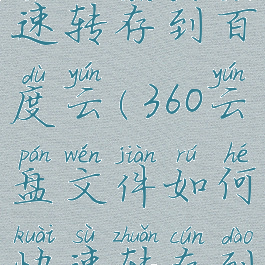 速转存到百
dù yún yún
度云(360云
pán wén jiàn rú hé
盘文件如何
kuài sù zhuǎn cún dào
快速转存到